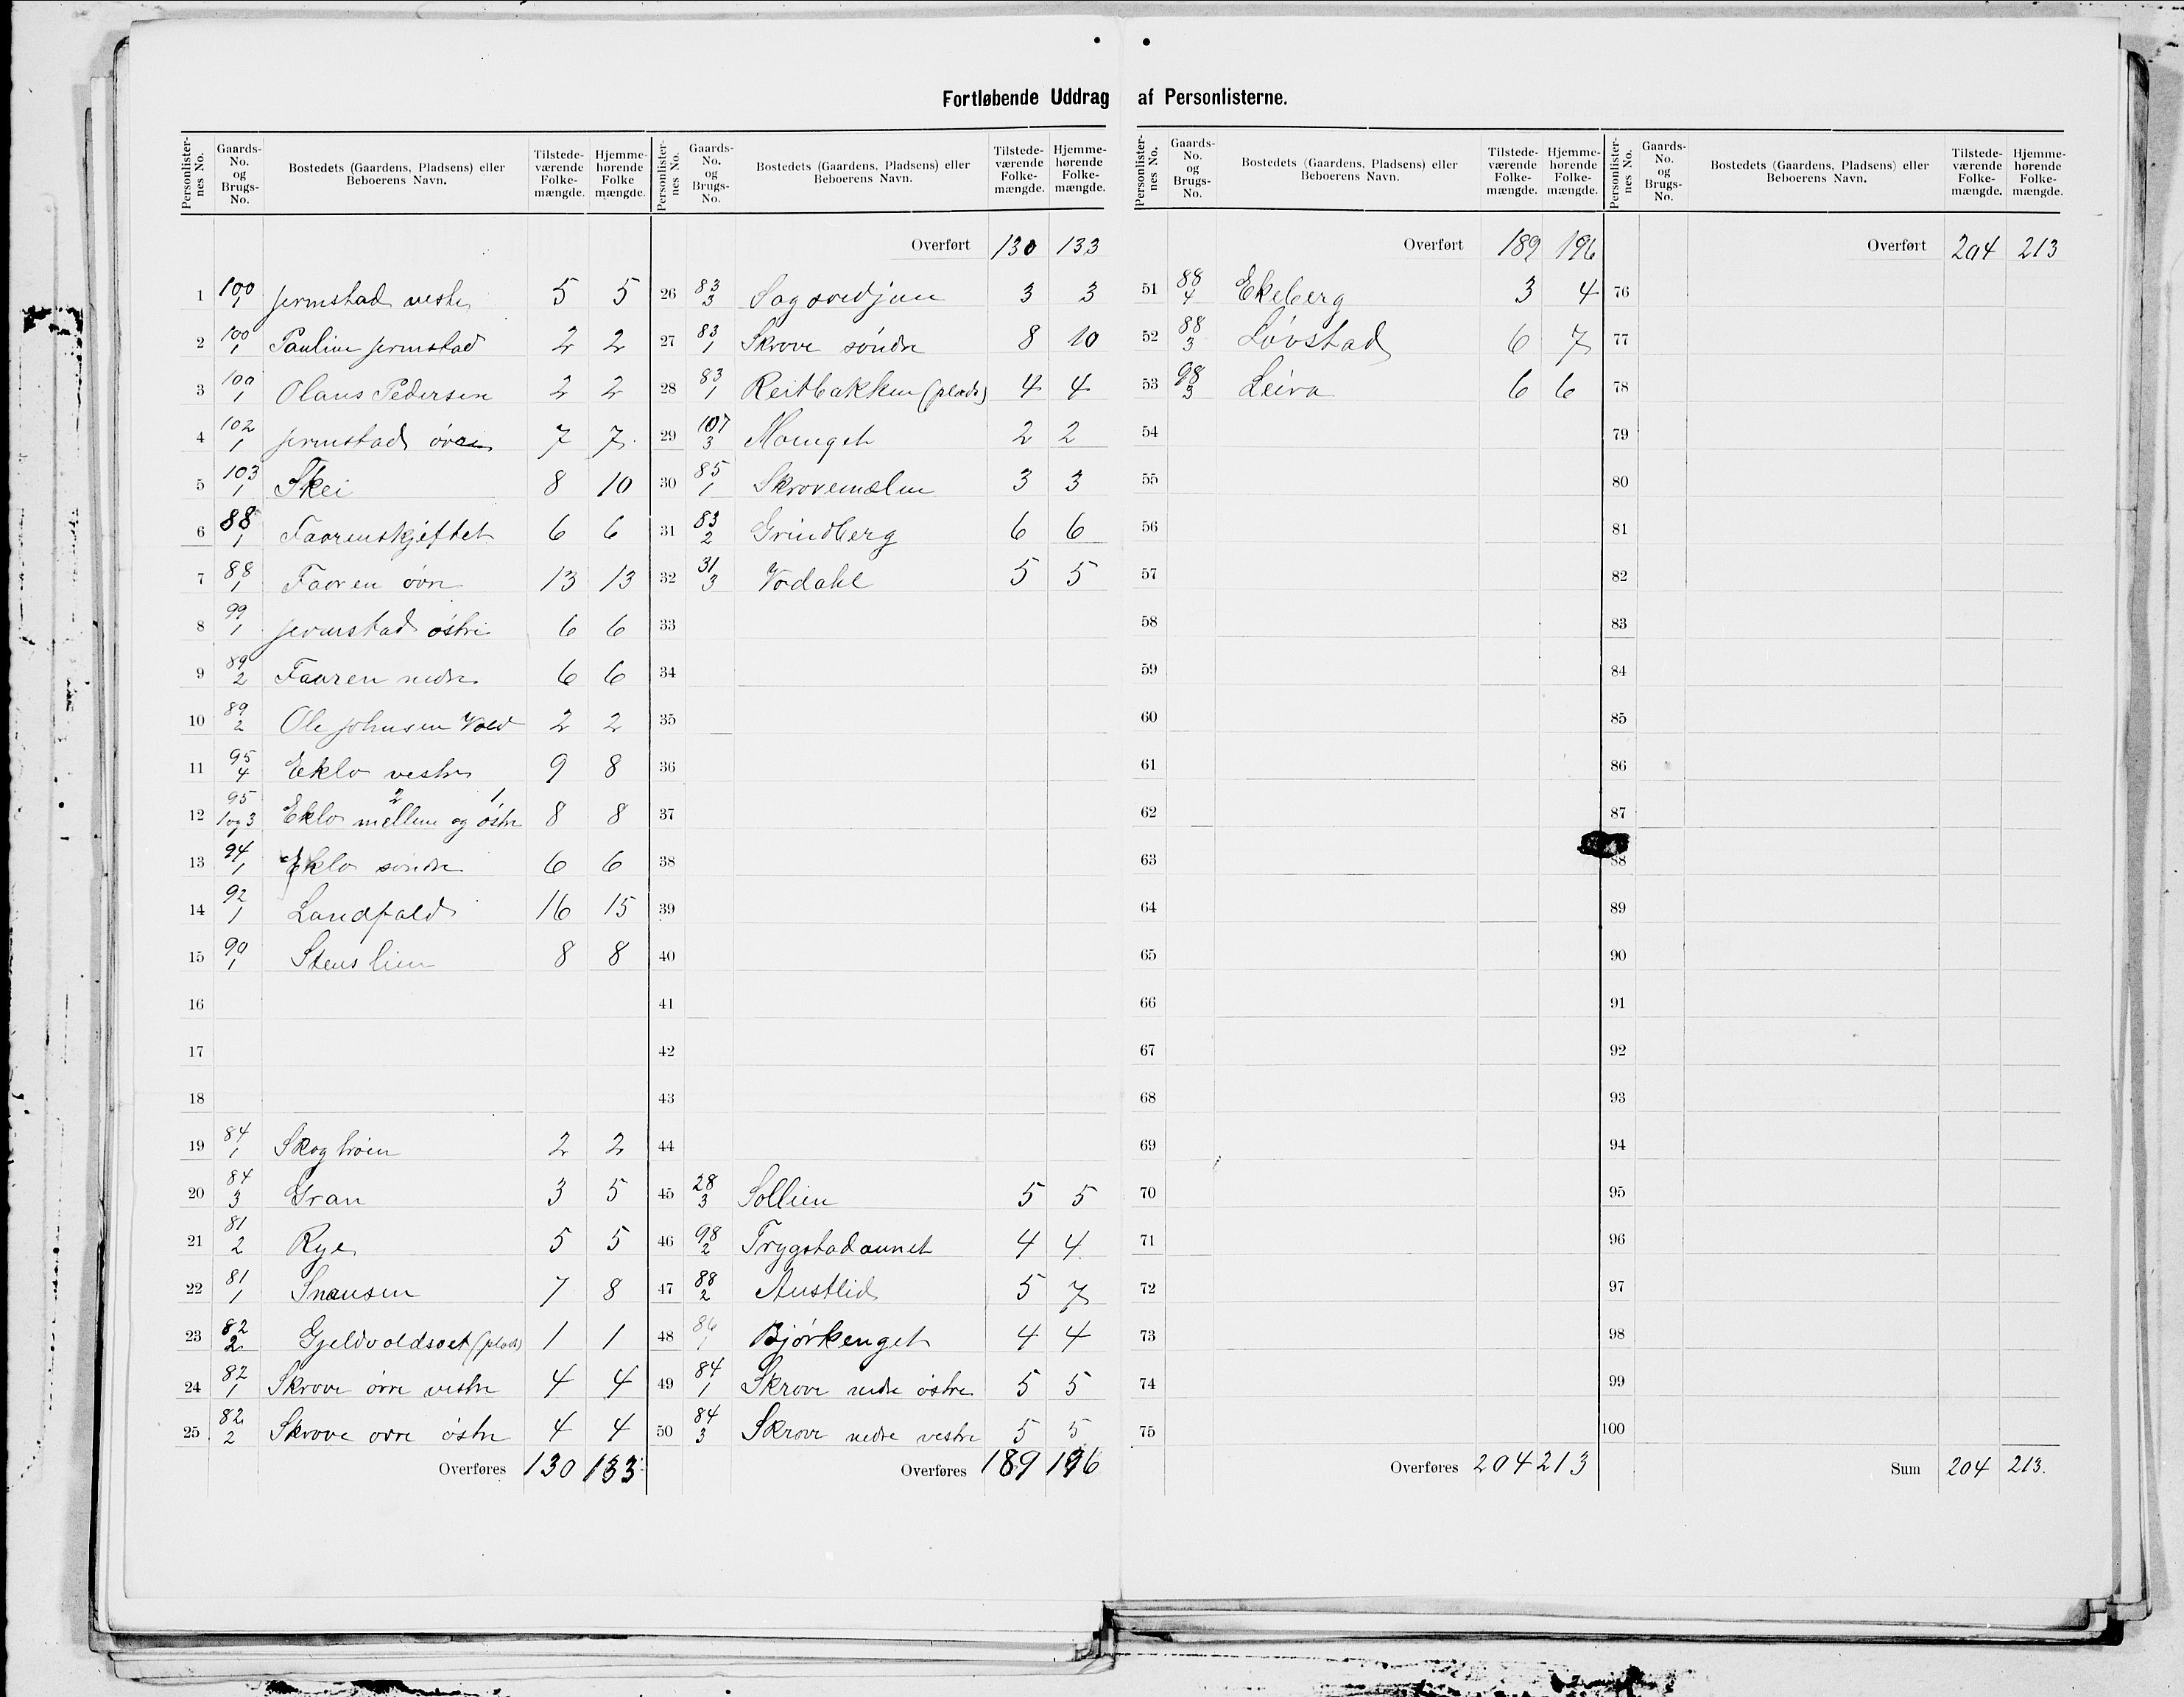 Fortløbende Uddrag af Personlisterne.
Personlister-nes No. Gaards-No. og Brugs-No. Bostedets (Gaardens, Pladsens) eller Beboerens Navn. Tilstede-værende Folke-mængde. Hjemme-hørende Folke mængde.
1 100/1 Jermstad vestre 5 5
2 100/1 Pauline Jermstad 2 2
3 100/1 Olaus Pedersen 2 2
4 102/1 Jermstad övre 7 7
5 103/1 Skei 8 10
6 88/1 Faarenskjeftet 6 6
7 88/1 Faaren övre 13 13
8 99/1 Jermstad östre 6 6
9 89/2 Faaren nedre 6 6
10 89/2 Ole Johnsen Vold 2 2
11 95/4 Eklo vestre 9 8
12 95/1 og 3 Eklo mellem 2 og östre 1 8 8
13 94/1 Eklo söndre 6 6
14 92/1 Landfald 16 15
15 90/1 Stenslien 8 8
16
17
18
19 84/1 2 2
20 84/3 Gran 3 5
21 81/2 Rye 5 5
22 81/1 Snausen 7 8
23 82/2 (plads) 1 1
24 82/1 Skrove övre vestre 4 4
25 82/2 Skrove övre östre 4 4
Overføres 130 133
Personlister-nes No. Gaards-No. og Brugs-No. Bostedets (Gaardens, Pladsens) eller Beboerens Navn. Tilstede-værende Folke-mængde. Hjemme-hørende Folke-mængde.
Overført 130 133
26 83/3 3 3
27 83/1 Skrove söndre 8 10
28 83/1 Reitbakken (plads) 4 4
29 107/3 2 2
30 85/1 Skrovemælen 3 3
31 83/2 Grindberg 6 6
32 31/3 Vordahl 5 5
33
34
35
36
37
38
39
40
41
42
43
44
45 28/3 Sollien 5 5
46 98/2 Trygstadaunet 4 4
47 88/2 Austlid 5 7
48 86/1 Björkenget 4 4
49 84/1 Skrove nedre östre 5 5
50 84/3 Skrove nedre vestre 5 5
Overføres 189 196
Personlister-nes No. Gaards-No. og Brugs-No. Bostedets (Gaardens, Pladsens) eller Beboerens Navn. Tilstede-værende Folke-mængde. Hjemme-hørende Folke-mængde.
Overført 189 196
51 88/4 Ekeberg 3 4
52 88/3 Lövstad 6 7
53 98/3 Leira 6 6
54
55
56
57
58
59
60
61
62
63
64
65
66
67
68
69
70
71
72
73
74
75
Overføres 204 213
Personlister-nes No. Gaards-No. og Brugs-No. Bostedets (Gaardens, Pladsens) eller Beboerens Navn. Tilstede-værende Folke-mængde. Hjemme-hørende Folke-mængde.
Overført 204 213
76
77
78
79
80
81
82
83
84
85
86
87
88
89
90
91
92
93
94
95
96
97
98
99
100
Sum 204 213.